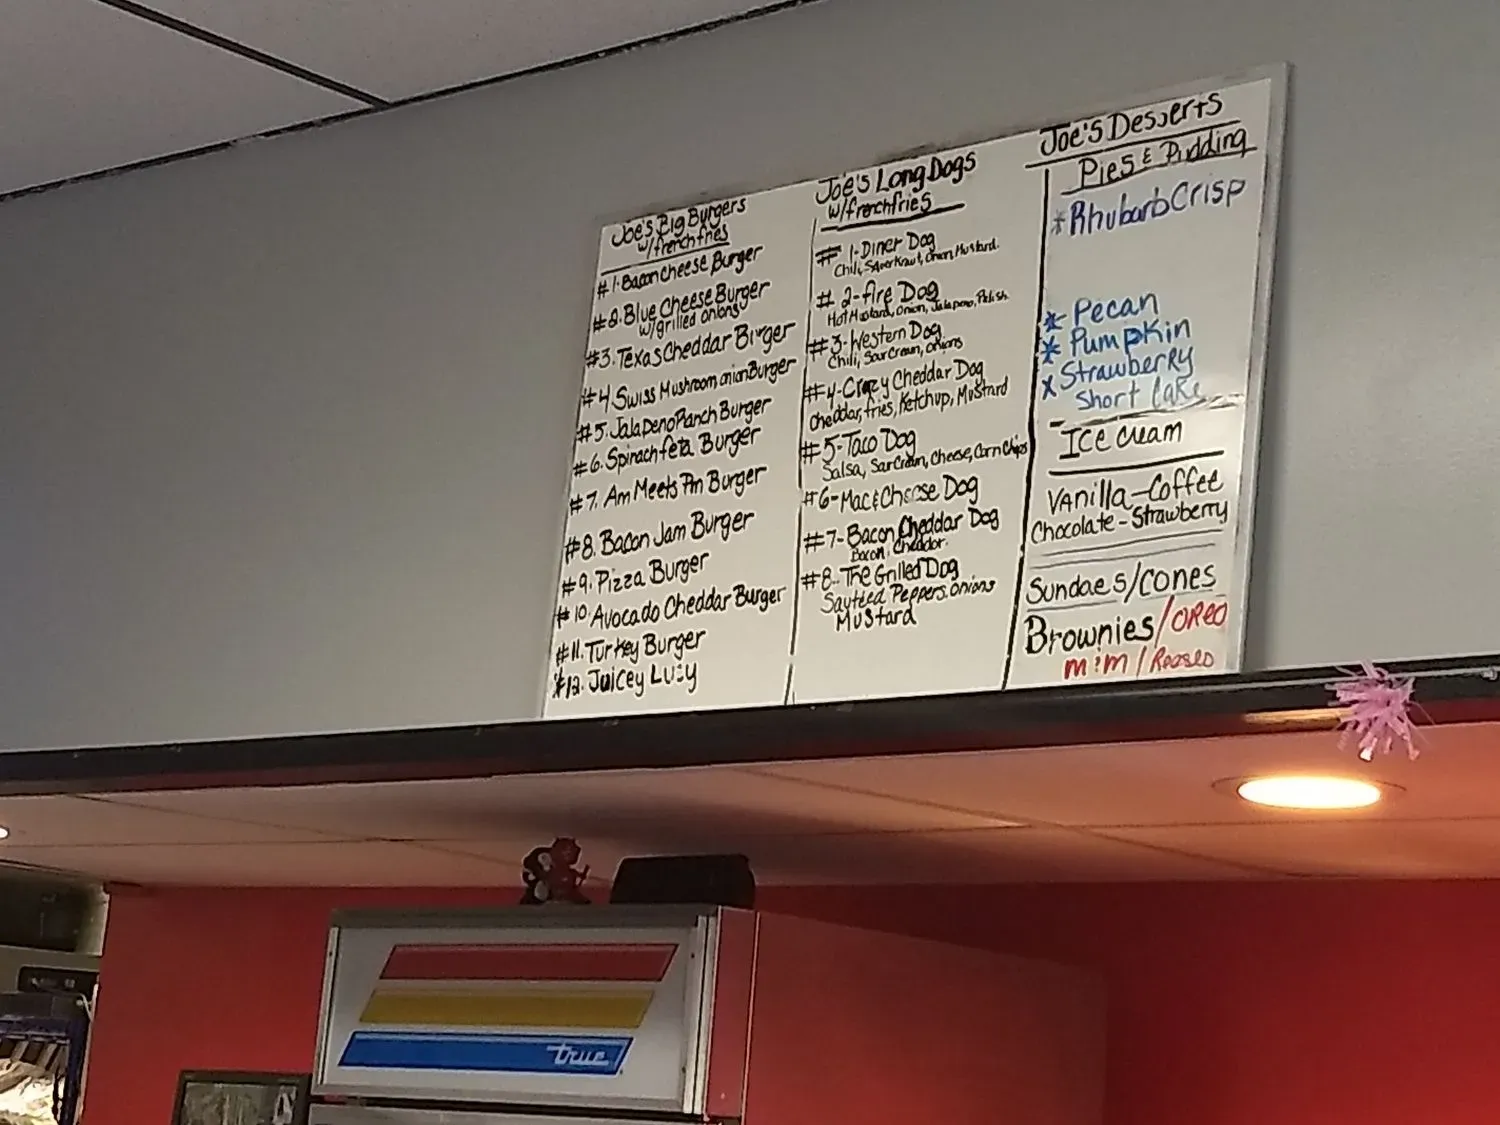 Joe's Big Burgers
w/french fries
#1. Bacon Cheese Burger
#2. Blue Cheese Burger
w/grilled onions
#3. Texas Cheddar Burger
#4 Swiss Mushroom onion Burger
#5. Jalapeno Ranch Burger
#6. Spinach feta Burger
#7. Am Meets Pm Burger
#8. Bacon Jam Burger
#9. Pizza Burger
#10. Avocado Cheddar Burger
#11. Turkey Burger
#12. Juicey Lucy
Joe's Long Dogs
w/french fries
# 1-Diner Dog
Chili, Saverkraut, Onion, Mustard.
# 2-fire Dog
Hot Mustard, Onion, Jalapeno, Relish.
#3-Western Dog
Chili, Sour Cream, onions
#4-Crazy Cheddar Dog
Cheddar, fries, Ketchup, Mustard
#5-Taco Dog
Salsa, Sour Cream, Cheese, Corn Chips
#6-Mac & Cheese Dog
#7-Bacon Cheddar Dog
Bacon, Cheddar.
#8-The Grilled Dog
Sauteed Peppers, Onions
Mustard
Joe's Desserts
Pies & Pudding
*Rhubarb Crisp
* Pecan
* Pumpkin
* Strawberry
Short Cake
Ice Cream
Vanilla-Coffee
Chocolate-Strawberry
Sundaes/Cones
Brownies/OREO
m:m/Reeses
true